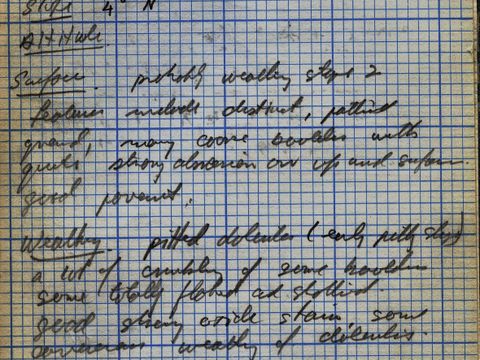 Slope 4° N
Altitude
Surface. probably weathering stage 2
features include distinct, patterned
ground, many coarse boulders with
quite strong abrasion on up and surface.
good pavement.
Weathering. pitted dolerites (early pitting stage)
a lot of crumbling of some boulders
some totally flaked and
good strong oxide stain some
cavernous weathering of dolerites.